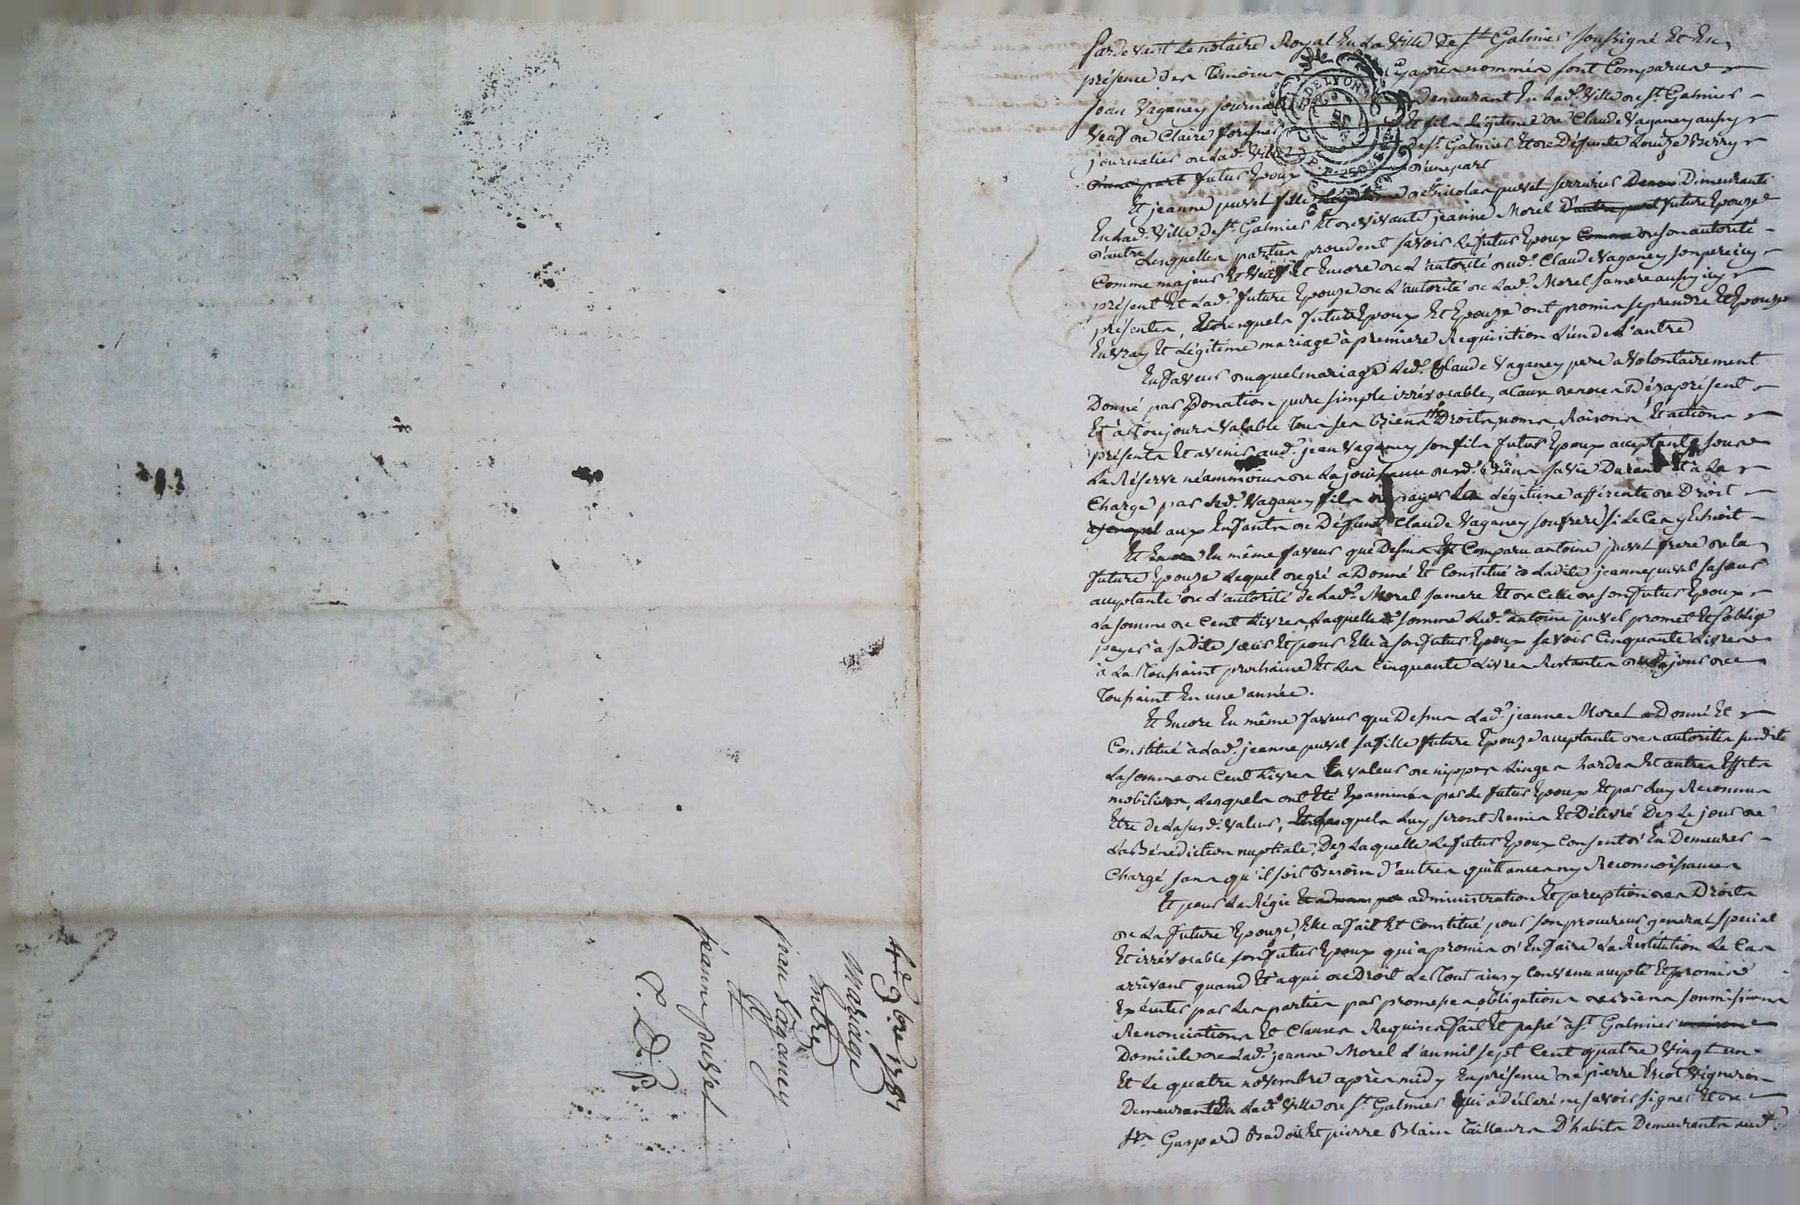 4e 9bre 1781
mariage
entre
jean Vaganey
Et
jeanne puvel
C. D. P.
Pardevant Le notaire Royal En La Ville De St. Galmier soussigné Et En
présence Des Temoins Cyaprès nommés sont Comparus
jean Vaganey journalier Demeurant En Lad. Ville De St. Galmier
Veuf de Claire Et fils légitime de Claude Vaganey aussy
journalier de Lad. Ville de St. Galmier Et de Défunte Louize Berry
d'une part futur Epoux d'une part
Et jeanne puvel fille légitime de Nicolas puvel serrurier Demeurante
En Lad. Ville De St. Galmier Et de vivante jeanne Morel D'autre part future Epouze
d'autre Lesquelles parties procedent savoir Le futur Epoux Comme de son autorité
Comme majeur Et Veuf Et Encore de L'autorité dud. Claude Vaganey son pere icy
présent Et Lad. future Epouze de L'autorité de Lad. Morel sa mere aussy icy
présente, Lesquels futur Epoux Et Epouze ont promis se prendre Et Epouzer
En vray Et Légitime mariage à premiere Requisition L'un de L'autre
En faveur duquel mariage Led. Claude Vaganey pere a volontairement
Donné par Donation pure simple irrévocable, a cause de noces Dez aprésent
Et à toujours valable tous ses Biens Droits, noms Raisons Et actions
présents Et avenir aud. jean Vaganey son fils futur Epoux acceptant, sous
La Réserve néammoins de La jouissance desd. Biens sa vie Durant Et à La
Charge par Led. Vaganey fils de payer La légitime afférente de Droit
aux Enfants de Défunt Claude Vaganey son frere si Le Cas y Echoit
Et En même faveur que Dessus Est Comparu antoine puvel frere de la
future Epouze Lequel de gré a Donné Et Constitué à Ladite jeanne puvel sa sœur
acceptante de L'autorité de Lad. Morel sa mere Et de Celle de son futur Epoux
La somme de Cent Livres, Laquelle somme Led. antoine puvel promet Et s'oblige
payer à sadite sœur Et pour Elle à son futur Epoux savoir Cinquante Livres
à La Toussaint prochaine Et Les Cinquante Livres Restantes dud. jour de
Toussaint En une année.
Et Encore En même faveur que Dessus Lad. jeanne Morel a Donné Et
Constitué à Lad. jeanne puvel sa fille future Epouze acceptante des autorités susdite
La somme de Cent Livres En valeur de nippes Linges hardes Et autres Effets
mobiliers, Lesquels ont Eté Examinés par Le futur Epoux Et par Luy Reconnus
Etre de La susd. valeur, Lesquels Luy seront Remis Et Délivré Dez Le jour de
La Bénédiction nuptiale, Dez Laquelle Le futur Epoux Consent d'En Demeurer
Chargé sans qu'il soit Besoin d'autres quittances ny Reconnoissances
Et pour La Régie administration Et perception des Droits
de La future Epouze, Elle a fait Et Constitué pour son procureur general special
Et irrévocable son futur Epoux qui a promis d'En faire La Restitution Le Cas
arrivant quand Et à qui de Droit Le Tout ainsy convenu accepté Et promis
Exécuter par Les parties par promesses obligations de Biens soumissions
Renonciations Et Clauses Requises fait Et passé à St. Galmier maison
Domicile de Lad. jeanne Morel L'an mil sept Cent quatre vingt un
Et Le quatre novembre après midy En présence de pierre Vigneron
Demeurant En Lad. Ville de St. Galmier qui a déclaré ne savoir signer Et de
Srs. Gaspard Et pierre Blain Tailleurs D'habits Demeurants aud.